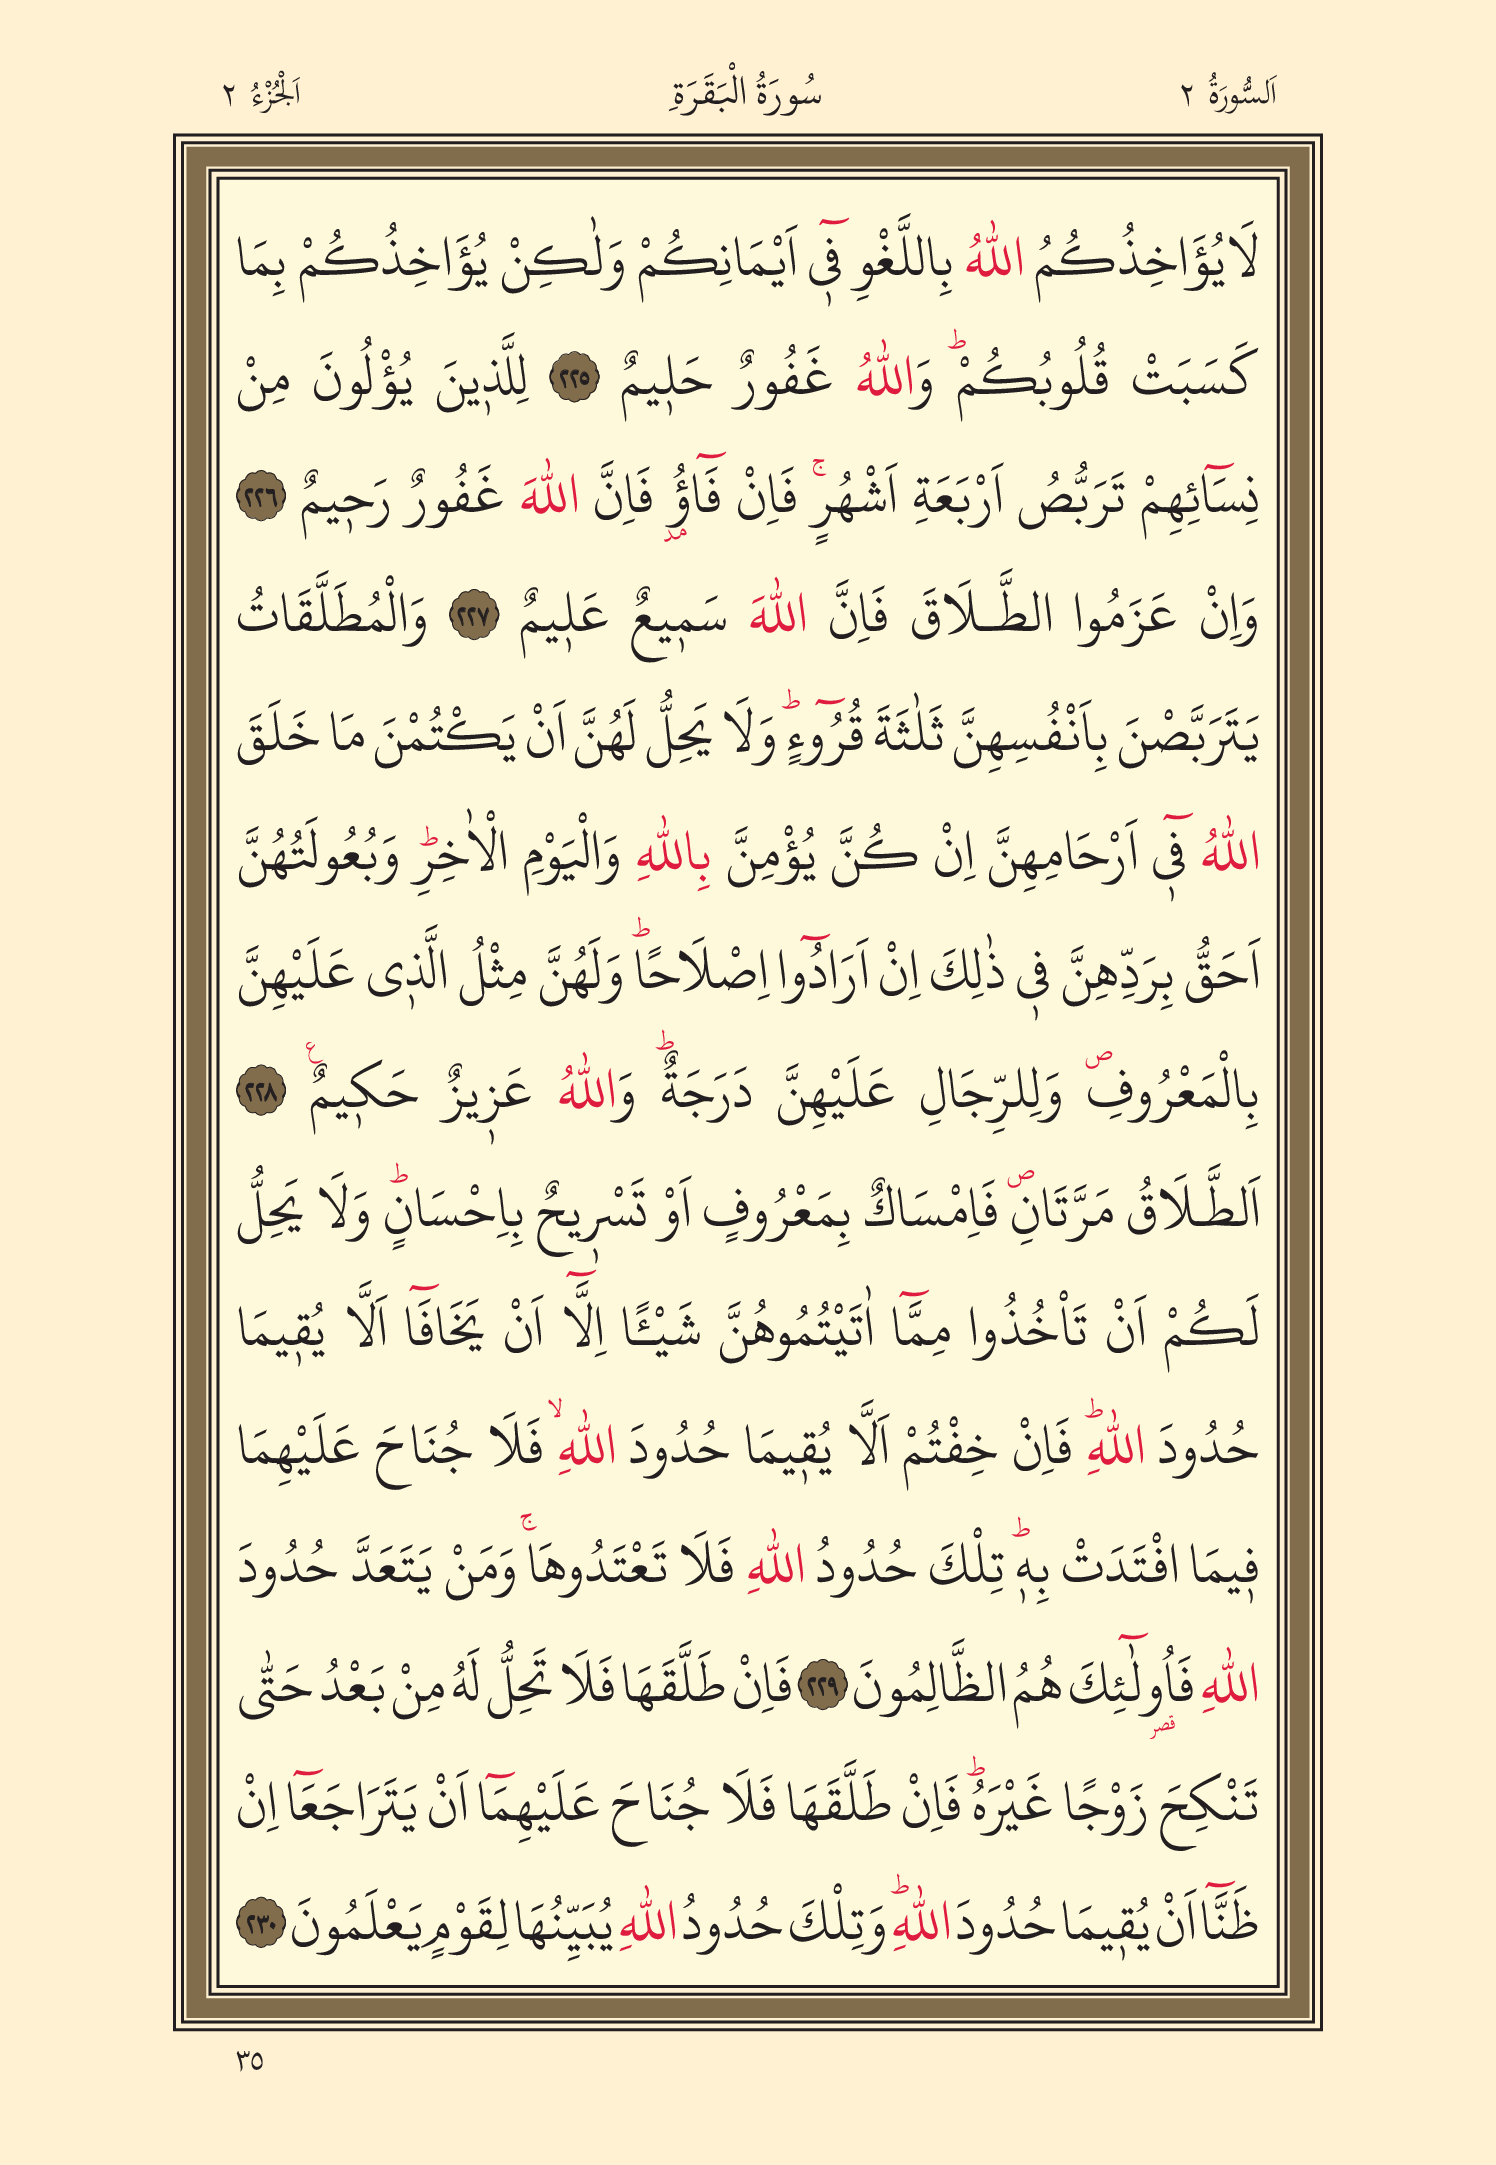 اَلسُّورَةُ ٢ سُورَةُ الْبَقَرَةِ اَلْجُزْءُ ٢
لَا يُؤَاخِذُكُمُ اللّٰهُ بِاللَّغْوِ فٖٓي اَيْمَانِكُمْ وَلٰكِنْ يُؤَاخِذُكُمْ بِمَا
كَسَبَتْ قُلُوبُكُمْؕ وَاللّٰهُ غَفُورٌ حَلٖيمٌ ٢٢٥ لِلَّذٖينَ يُؤْلُونَ مِنْ
نِسَٓائِهِمْ تَرَبُّصُ اَرْبَعَةِ اَشْهُرٍۚ فَاِنْ فَٓاؤُ۫ مد فَاِنَّ اللّٰهَ غَفُورٌ رَحٖيمٌ ٢٢٦
وَاِنْ عَزَمُوا الطَّـلَاقَ فَاِنَّ اللّٰهَ سَمٖيعٌ عَلٖيمٌ ٢٢٧ وَالْمُطَلَّقَاتُ
يَتَرَبَّصْنَ بِاَنْفُسِهِنَّ ثَلٰثَةَ قُرُٓوءٍؕ وَلَا يَحِلُّ لَهُنَّ اَنْ يَكْتُمْنَ مَا خَلَقَ
اللّٰهُ فٖٓي اَرْحَامِهِنَّ اِنْ كُنَّ يُؤْمِنَّ بِاللّٰهِ وَالْيَوْمِ الْاٰخِرِؕ وَبُعُولَتُهُنَّ
اَحَقُّ بِرَدِّهِنَّ فٖي ذٰلِكَ اِنْ اَرَادُٓوا اِصْلَاحًاؕ وَلَهُنَّ مِثْلُ الَّذٖى عَلَيْهِنَّ
بِالْمَعْرُوفِࣕ وَلِلرِّجَالِ عَلَيْهِنَّ دَرَجَةٌؕ وَاللّٰهُ عَزٖيزٌ حَكٖيمٌ ع ٢٢٨
اَلطَّـلَاقُ مَرَّتَانِࣕ فَاِمْسَاكٌ بِمَعْرُوفٍ اَوْ تَسْرٖيحٌ بِاِحْسَانٍؕ وَلَا يَحِلُّ
لَكُمْ اَنْ تَاْخُذُوا مِمَّٓا اٰتَيْتُمُوهُنَّ شَيْـًٔا اِلَّٓا اَنْ يَخَافَٓا اَلَّا يُقٖيمَا
حُدُودَ اللّٰهِؕ فَاِنْ خِفْتُمْ اَلَّا يُقٖيمَا حُدُودَ اللّٰهِۙ فَلَا جُنَاحَ عَلَيْهِمَا
فٖيمَا افْتَدَتْ بِهٖؕ تِلْكَ حُدُودُ اللّٰهِ فَلَا تَعْتَدُوهَاۚ وَمَنْ يَتَعَدَّ حُدُودَ
اللّٰهِ فَاُولٰٓئِكَ قصر هُمُ الظَّالِمُونَ ٢٢٩ فَاِنْ طَلَّقَهَا فَلَا تَحِلُّ لَهُ مِنْ بَعْدُ حَتّٰى
تَنْكِحَ زَوْجًا غَيْرَهُؕ فَاِنْ طَلَّقَهَا فَلَا جُنَاحَ عَلَيْهِمَٓا اَنْ يَتَرَاجَعَٓا اِنْ
ظَنَّٓا اَنْ يُقٖيمَا حُدُودَ اللّٰهِؕ وَتِلْكَ حُدُودُ اللّٰهِ يُبَيِّنُهَا لِقَوْمٍ يَعْلَمُونَ ٢٣٠
٣٥